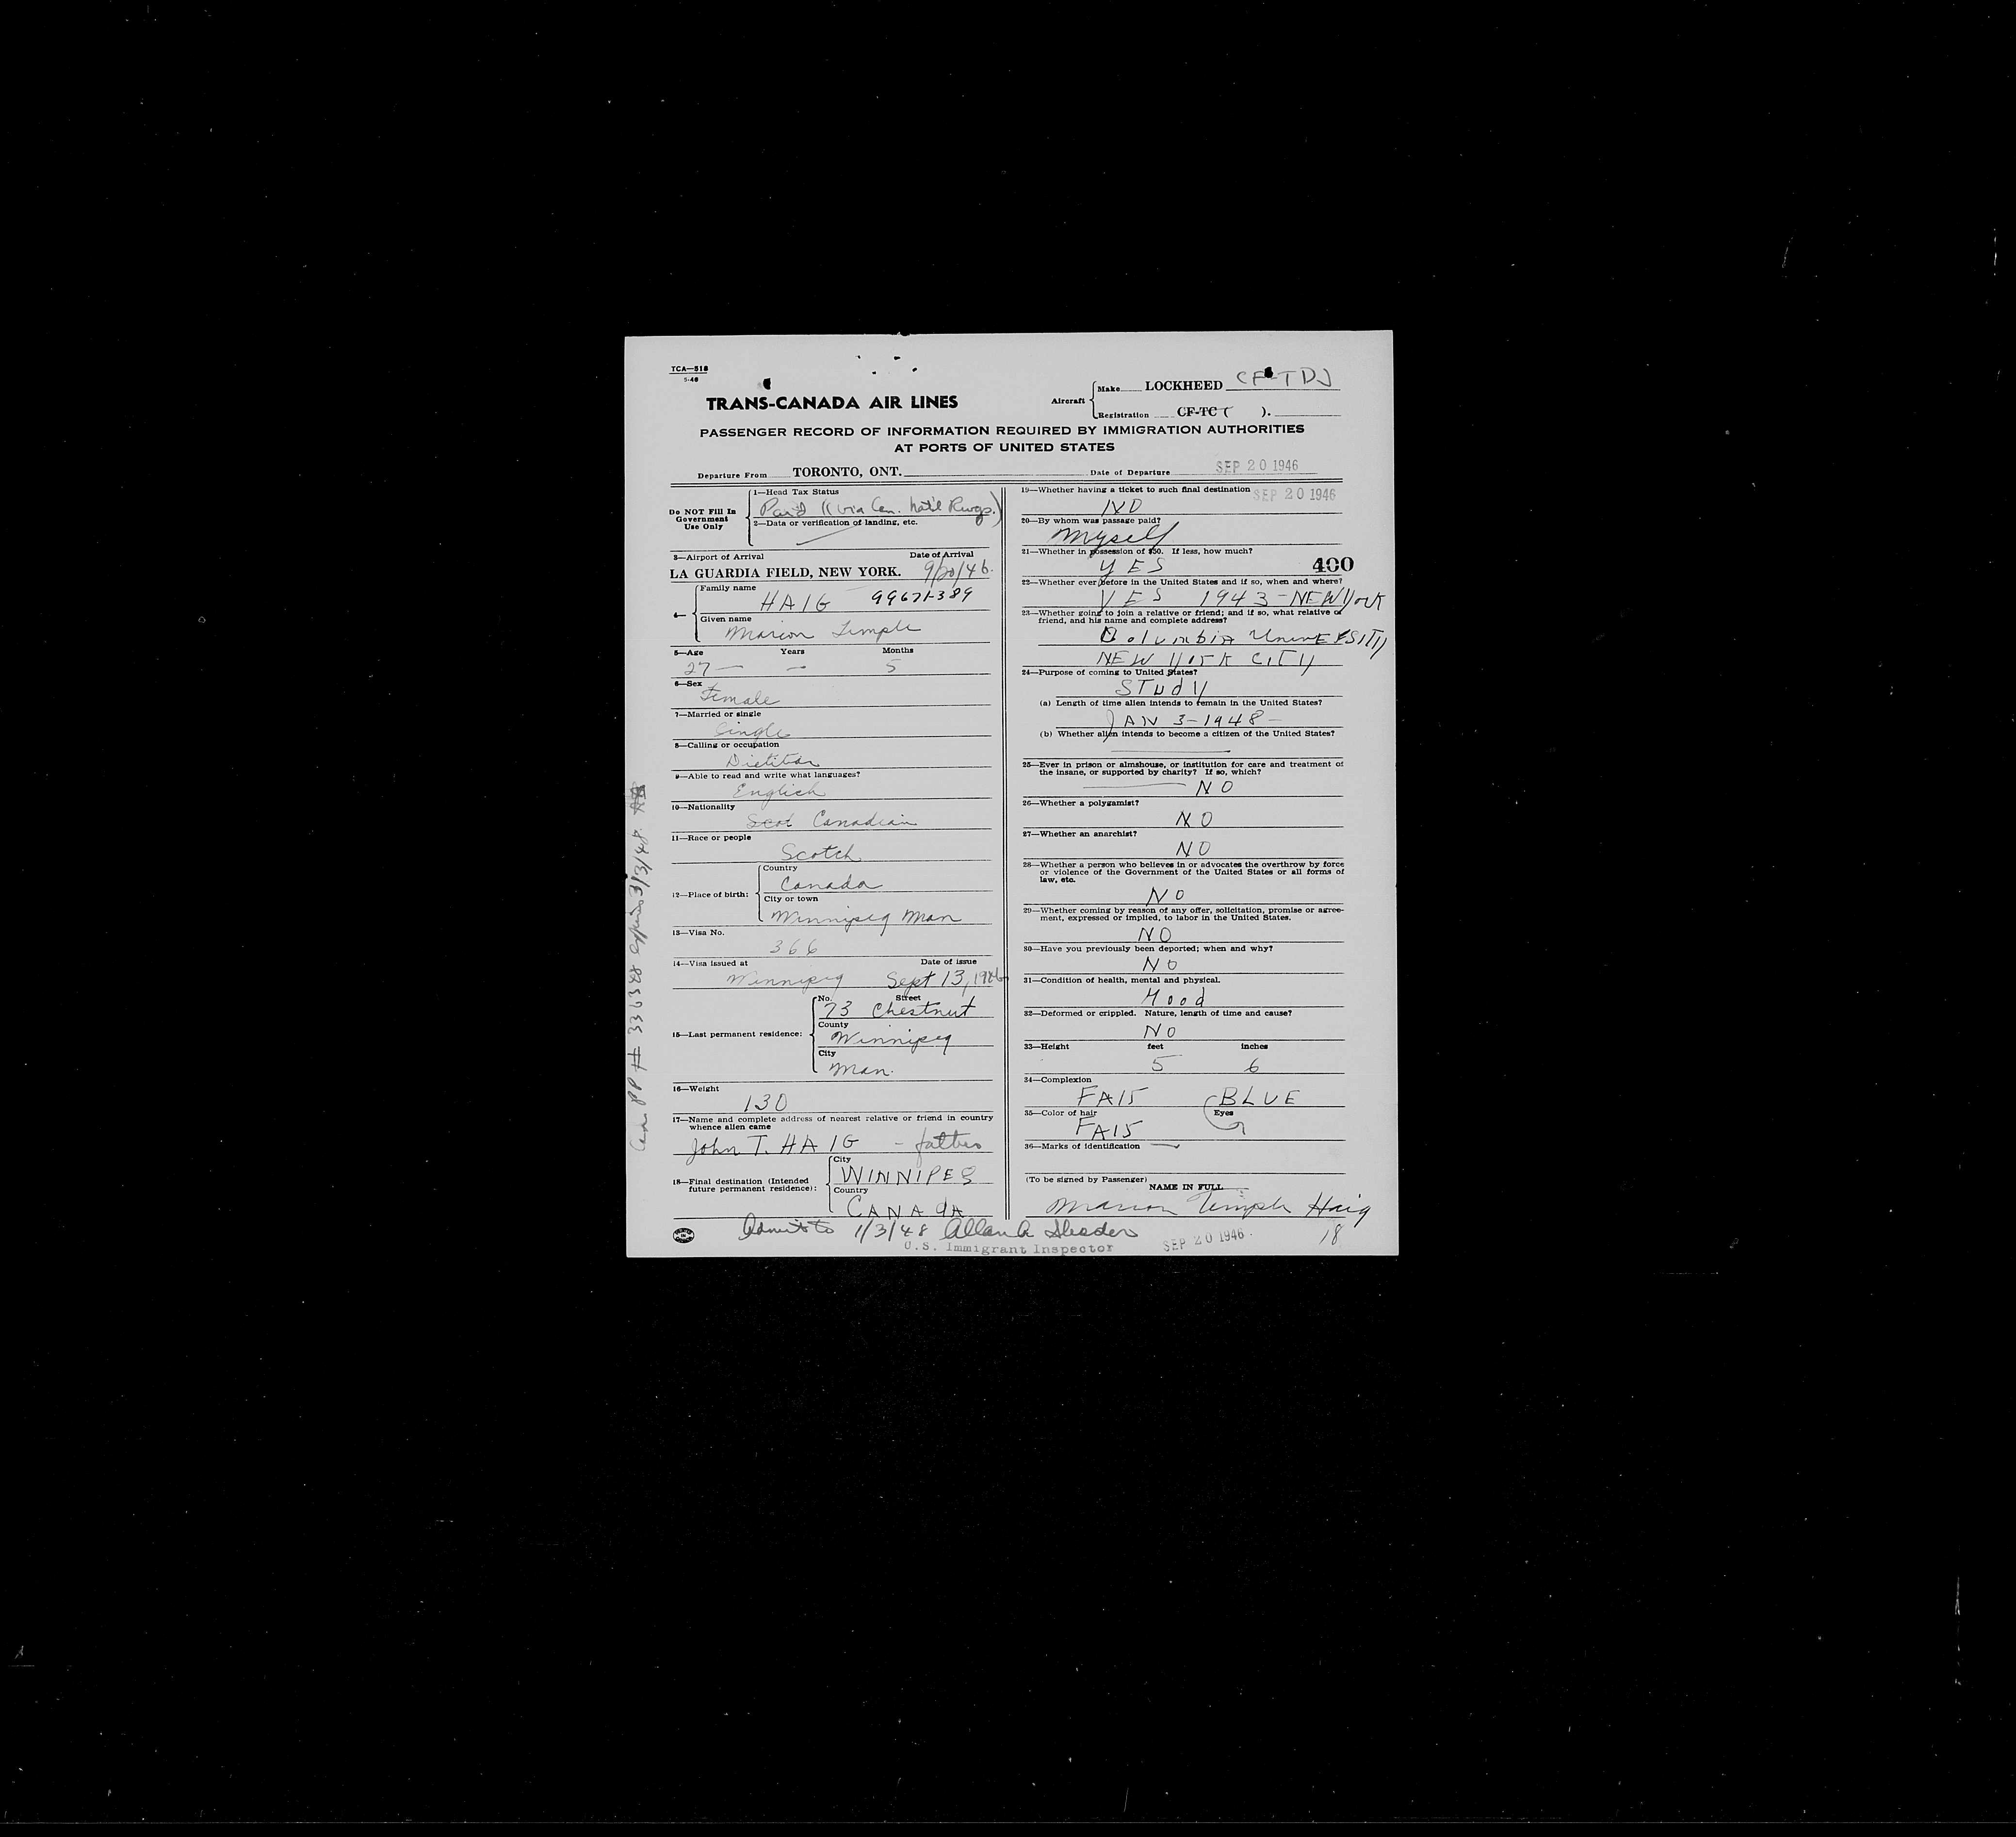 TCA—518
5-46
TRANS-CANADA AIR LINES
Aircraft
Make LOCKHEED CF-TDJ
Registration CF-TC ( ).
PASSENGER RECORD OF INFORMATION REQUIRED BY IMMIGRATION AUTHORITIES
AT PORTS OF UNITED STATES
Departure From TORONTO, ONT. Date of Departure SEP 20 1946
Do NOT Fill In
Government
Use Only
1—Head Tax Status
Paid (via Can. Nat'l Rwys.)
2—Data or verification of landing, etc.
3—Airport of Arrival Date of Arrival
LA GUARDIA FIELD, NEW YORK. 9/20/46.
4—
Family name
HAIG 99671-389
Given name
Marion Temple
5—Age Years Months
27 — — 5
6—Sex
Female
7—Married or single
Single
8—Calling or occupation
Dietitian
9—Able to read and write what languages?
English
10—Nationality
Scot Canadian
11—Race or people
Scotch
12—Place of birth:
Country
Canada
City or town
Winnipeg Man
13—Visa No.
366
14—Visa issued at Date of issue
Winnipeg Sept 13, 1946
15—Last permanent residence:
No. Street
73 Chestnut
County
Winnipeg
City
Man.
16—Weight
130
17—Name and complete address of nearest relative or friend in country
whence alien came
John T. HAIG - father
18—Final destination (Intended
future permanent residence):
City
WINNIPEG
Country
CANADA
19—Whether having a ticket to such final destination SEP 20 1946
NO
20—By whom was passage paid?
Myself
21—Whether in possession of $50. If less, how much?
YES 400
22—Whether ever before in the United States and if so, when and where?
YES 1943-NEW York
23—Whether going to join a relative or friend; and if so, what relative or
friend, and his name and complete address?
Columbia UnivERSITY
NEW YorK CITY
24—Purpose of coming to United States?
STudY
(a) Length of time alien intends to remain in the United States?
JAN 3-1948-
(b) Whether alien intends to become a citizen of the United States?
25—Ever in prison or almshouse, or institution for care and treatment of
the insane, or supported by charity? If so, which?
NO
26—Whether a polygamist?
NO
27—Whether an anarchist?
NO
28—Whether a person who believes in or advocates the overthrow by force
or violence of the Government of the United States or all forms of
law, etc.
NO
29—Whether coming by reason of any offer, solicitation, promise or agree-
ment, expressed or implied, to labor in the United States.
NO
30—Have you previously been deported; when and why?
NO
31—Condition of health, mental and physical.
Good
32—Deformed or crippled. Nature, length of time and cause?
NO
33—Height feet inches
5 6
34—Complexion
FAIr BLUE
35—Color of hair Eyes
FAIr
36—Marks of identification —
(To be signed by Passenger)
NAME IN FULL
Marion Temple Haig
Admit to 1/3/48 Allan A.
U.S. Immigrant Inspector SEP 20 1946 18
Can PP # 333928 expires 3/3/48